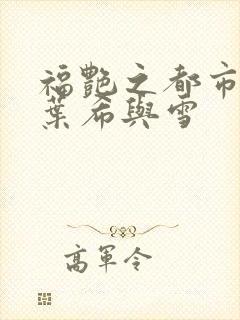 福艷之都市
葉希與雪
高軍令